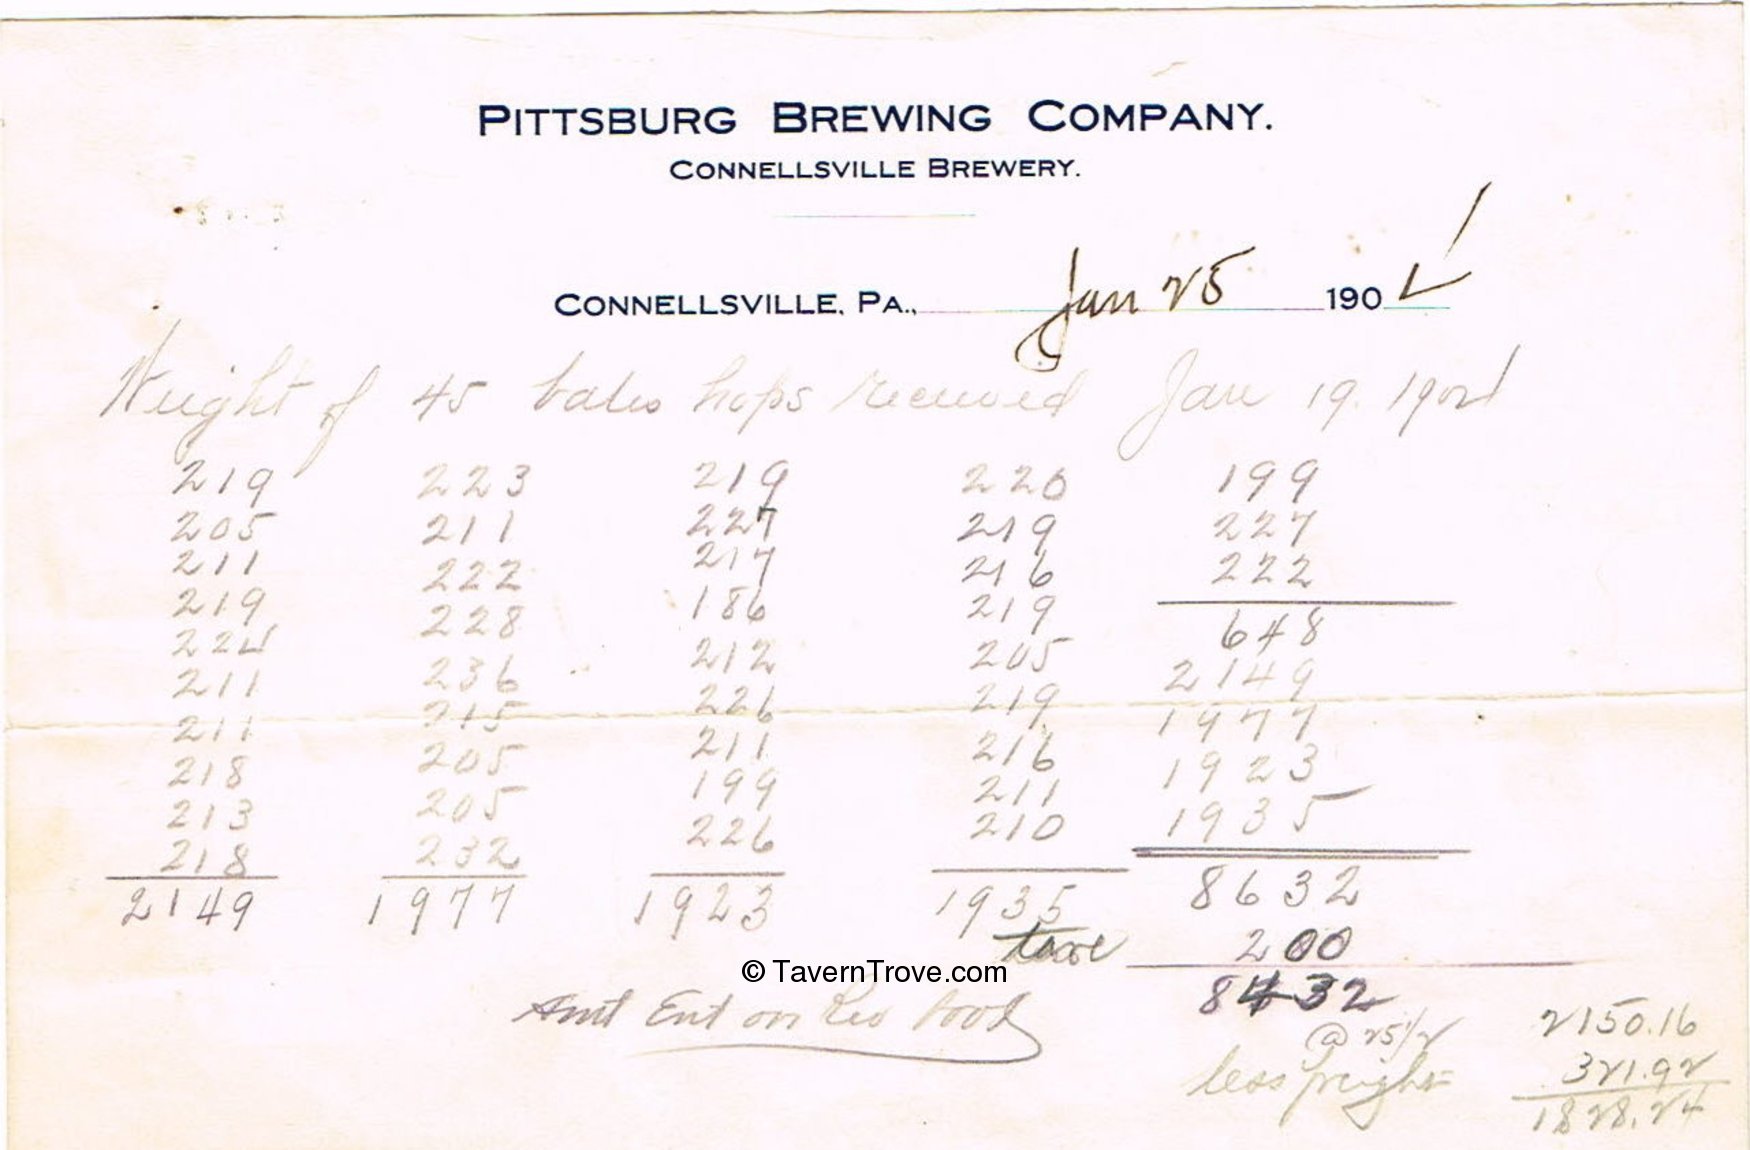 PITTSBURG BREWING COMPANY.
CONNELLSVILLE BREWERY.
CONNELLSVILLE, PA., Jan 25 1904
Weight of 45 bales hops received Jan 19. 1904
219 223 219 220 199
205 211 227 219 227
211 222 217 216 222
219 228 186 219 648
224 236 212 205 2149
211 215 226 219 1977
211 205 211 216 1923
218 205 199 211 1935
213 232 226 210 8632
218
2149 1977 1923 1935
tare 200
© TavernTrove.com
8432
Amt Ent on Rec book
@ 25 1/2 2150.16
less freight 321.92
1828.24